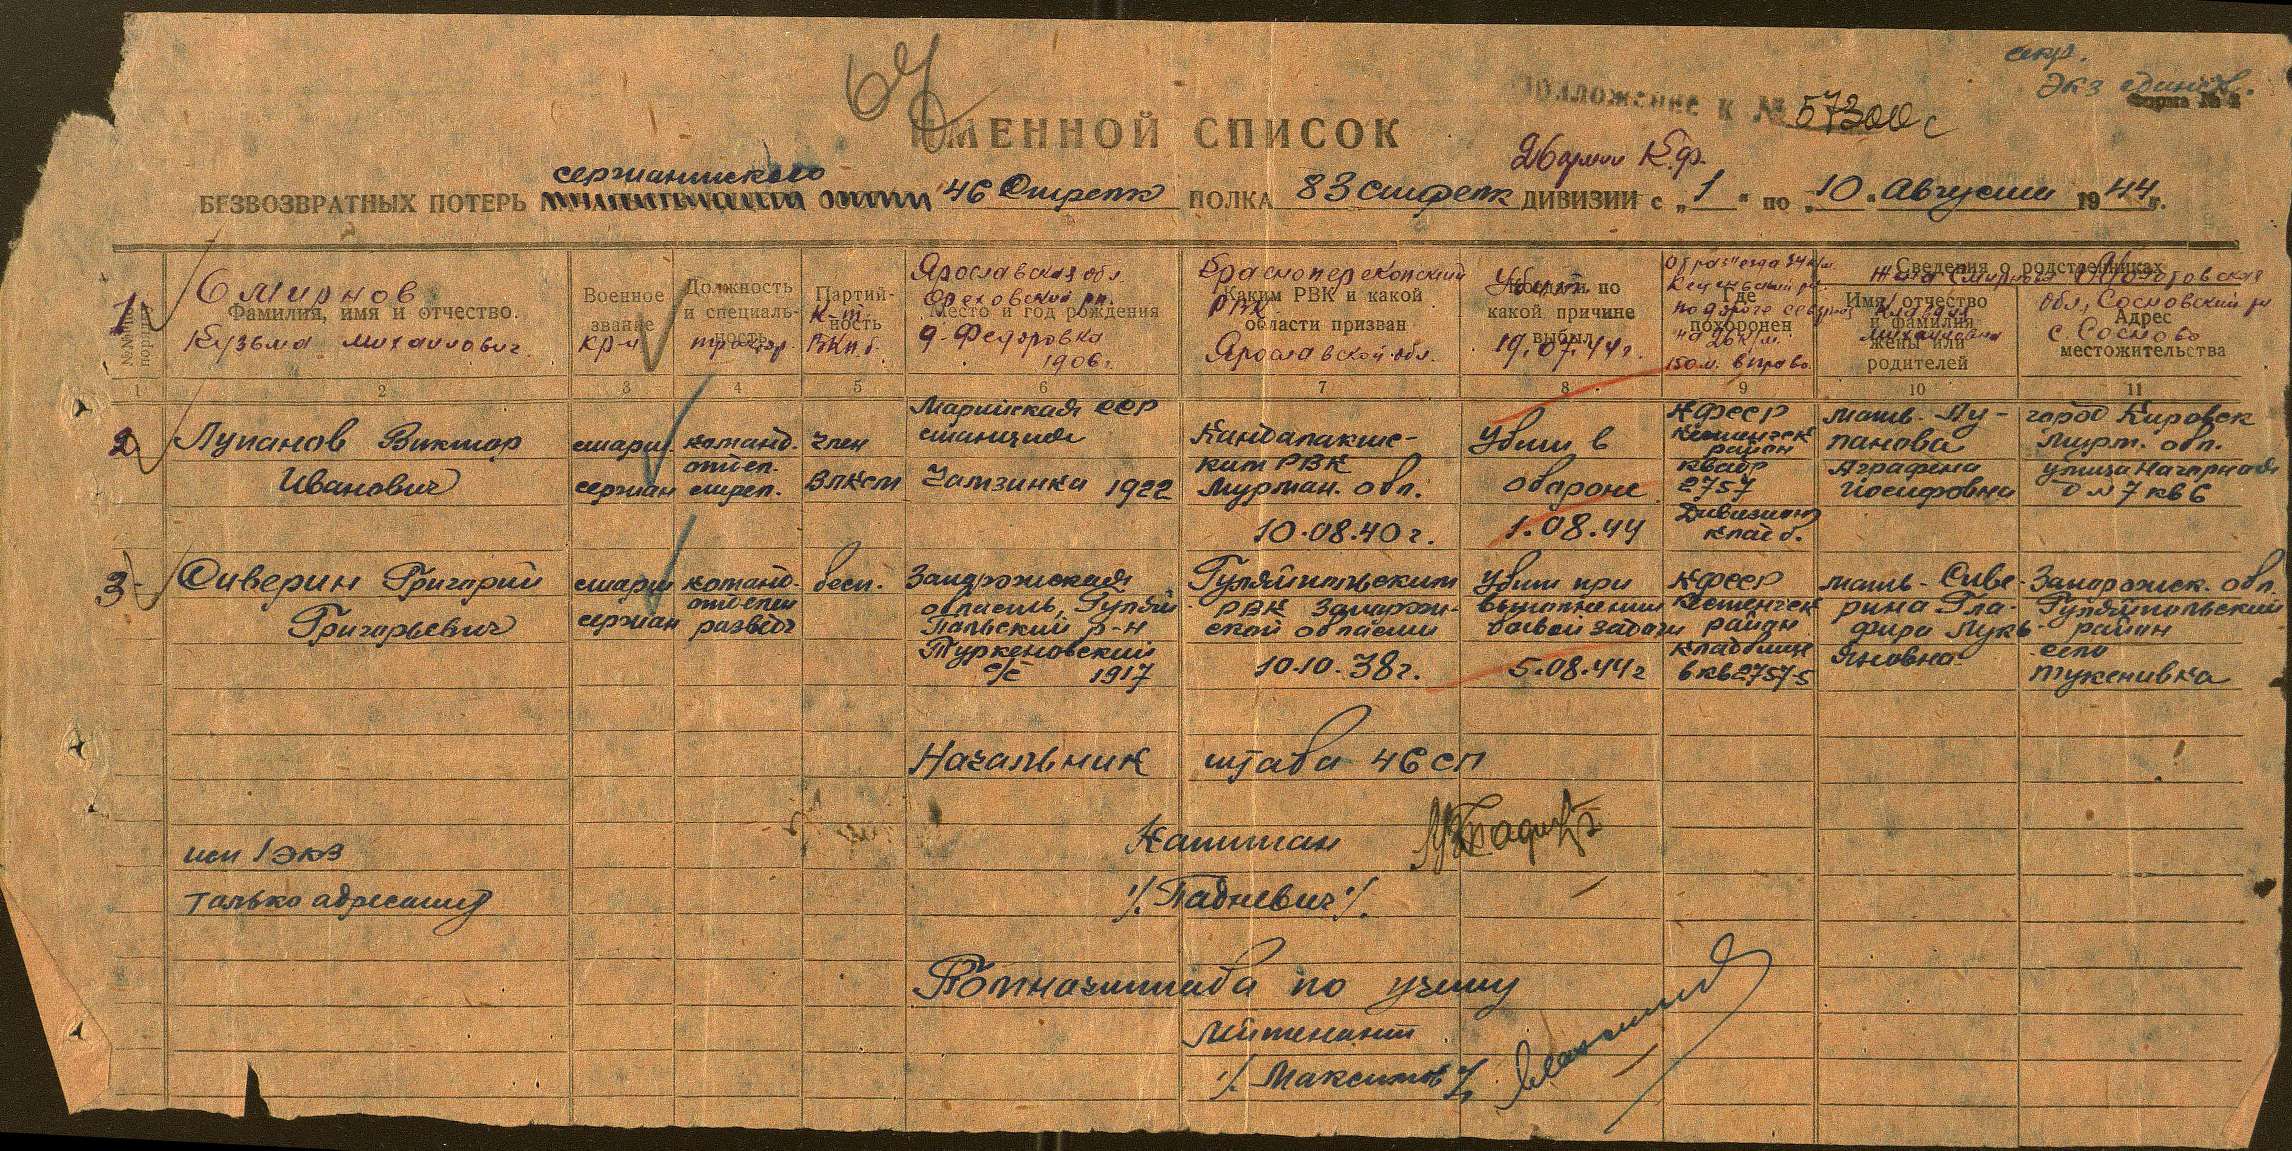 секр.
Экз единств.
Приложение к № 57300с
Форма № 2
ИМЕННОЙ СПИСОК
26 армии К.ф.
сержантского
БЕЗВОЗВРАТНЫХ ПОТЕРЬ 46 Стрелк ПОЛКА 83 стрелк ДИВИЗИИ с „1“ по „10“ Августа 1944 г.
№№ по порядку
Фамилия, имя и отчество.
Военное звание
Должность и специальность
Партийность
Место и год рождения
Каким РВК и какой области призван
Убыл по какой причине выбыл
Где похоронен
Сведения о родственниках
Имя, отчество и фамилия жены или родителей
Адрес местожительства
1 2 3 4 5 6 7 8 9 10 11
1
Смирнов
Кузьма Михайлович
кр-ц
К-т
ВКПб.
Ярославская обл
д. Федоровка
1906 г.
Красноперекопский
РВК
Ярославской обл.
19.07.44 г.
по дороге
на 26 к/м.
150 м. вправо
Жена Смирнова
Клавдия
Михайловна
обл, Сосновский рн
с Сосново
2
Лупанов Виктор
Иванович
старш.
сержан
команд.
отдел.
стрел.
член
ВЛКСМ
Марийская ССР
станция
Чамзинка 1922
Кандалакшс-
ким РВК
Мурман. обл.
10.08.40 г.
Убит в
обороне
1.08.44
КФССР
Кестенгск
район
квадр
2757
Дивизион
кладб.
мать - Лу-
панова
Аграфена
Иосифовна
город Кировск
Мурм. обл.
улица Нагорная
д № 7 кв 6
3
Сиверин Григорий
Григорьевич
старш
сержан
команд.
отделен
развед
бесп.
Запорожская
область, Гуляй
Польский р-н
Туркеновский
с/с 1917
Гуляйпольским
РВК Запорож-
ской области
10.10.38 г.
Убит при
выполнении
боевой задачи
5.08.44 г
КФССР
Кестенгск
район
кладбище
в кв 2757-5
мать - Сиве-
рина Гла-
фира Лукь
яновна
Запорожск. обл.
Гуляйпольский
район
село
Туженивка
Начальник штаба 46 сп
Капитан
/. Падневич /.
исп 1 экз
только адресату
Помначштаба по учету
Лейтенант
/. Максимов /.